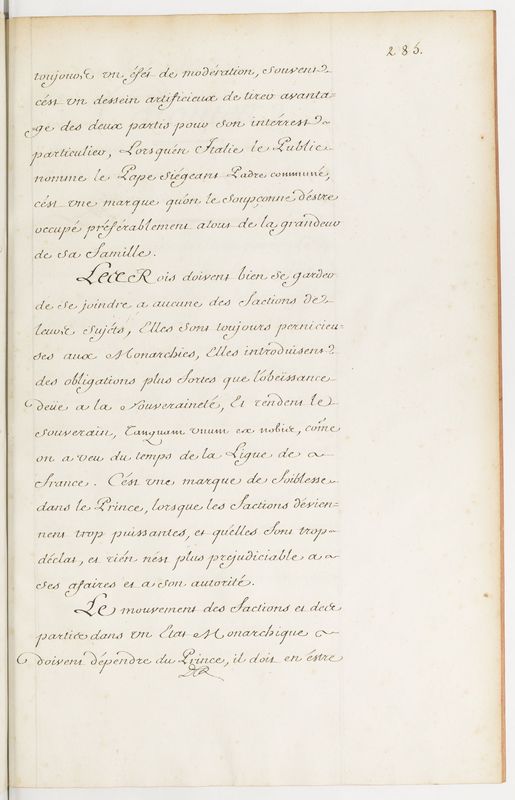 285.
toujours vn éfét de modération, souvent
cést vn dessein artificieux de tirer avanta=
ge des deux partis pour son intérrest
particulier, Lorsquén Italie le Public
nomme le Pape siégeant Padre communé,
cést vne marque quón le soupçonne déstre
occupé préférablement atout de la grandeur
de sa famille.
Les Rois doivent bien se garder
de se joindre a aucune des factions de
leurs sujéts, Elles sont toujours pernicieu=
ses aux Monarchies, Elles introduisent
des obligations plus fortes que lóbeïssance
deüe a la souveraineté, Et rendent le
souverain, Tanquam vnum ex nobis, com̃e
on a veu du temps de la Ligue de
france. Cést vne marque de foiblesse
dans le Prince, lorsque les factions dévien=
nent trop puissantes, et quélles font trop
déclat, et rién nést plus prejudiciable a
ses afaires et a son autorité.
Le mouvement des factions et des
partis dans vn Etat Monarchique
doivent dépendre du Prince, il doit en éstre